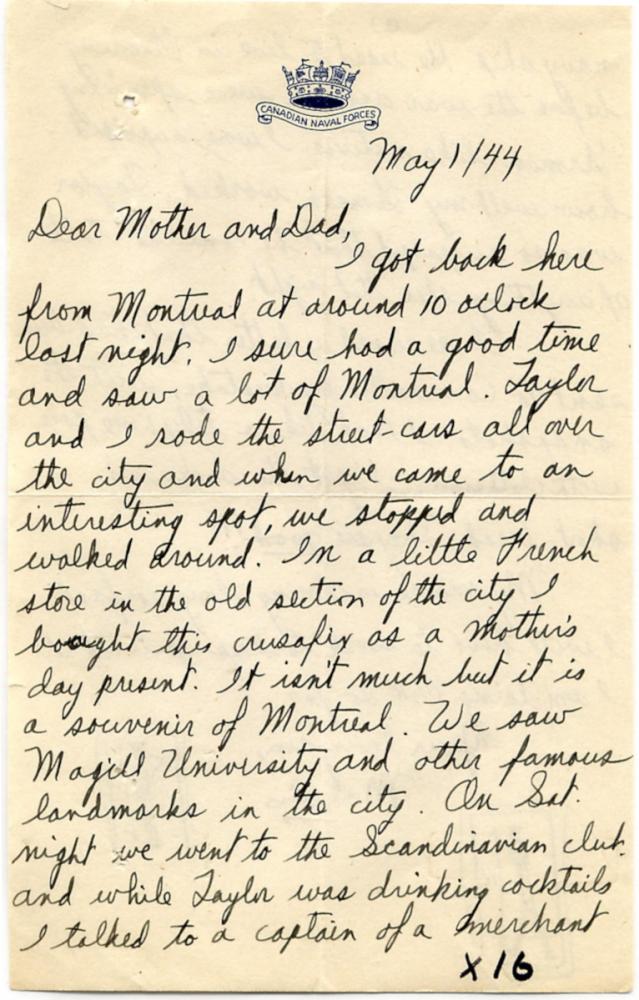 CANADIAN NAVAL FORCES
May 1/44
Dear Mother and Dad,
I got back here
from Montreal at around 10 oclock
last night. I sure had a good time
and saw a lot of Montreal. Taylor
and I rode the street-cars all over
the city and when we came to an
interesting spot, we stopped and
walked around. In a little French
store in the old section of the city I
bought this crusafix as a mother's
day present. It isn't much but it is
a souvenir of Montreal. We saw
Magill University and other famous
landmarks in the city. On Sat.
night we went to the Scandinavian club.
and while Taylor was drinking cocktails
I talked to a captain of a merchant
X16